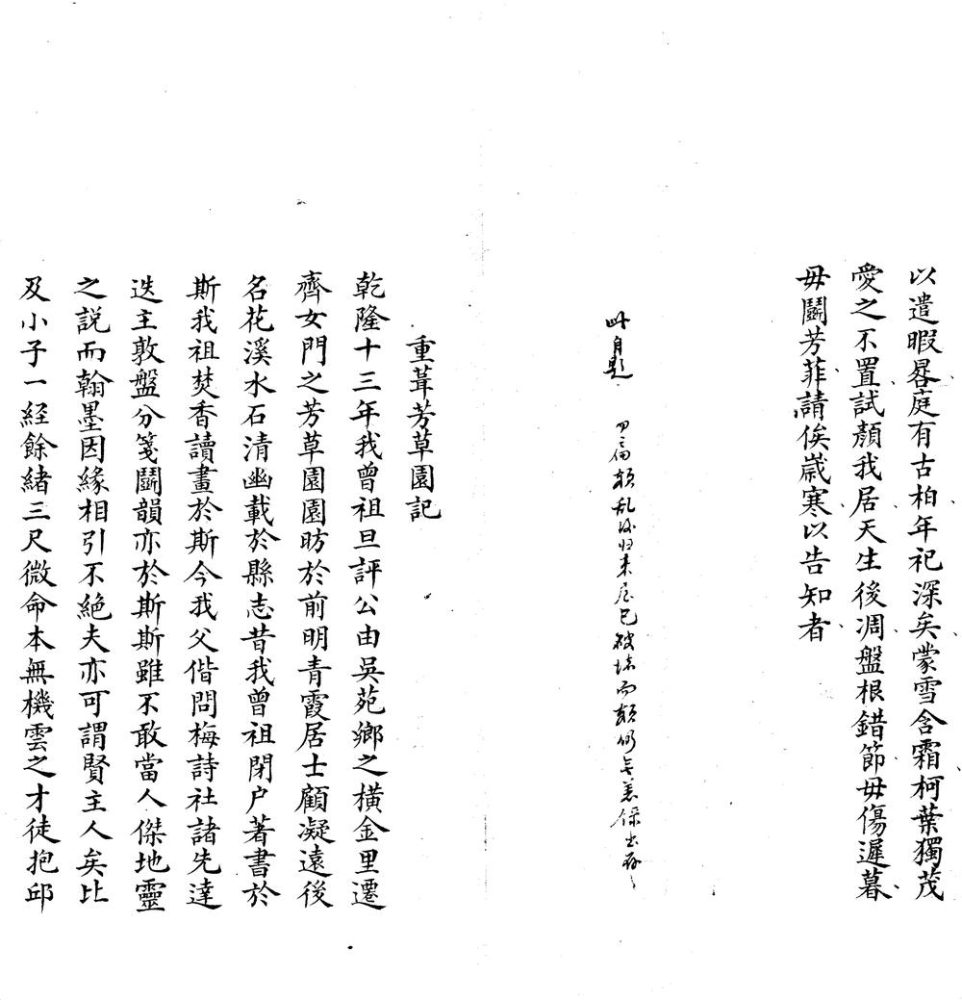 以遣暇晷庭有古柏年祀深矣蒙雪含霜柯葉獨茂
愛之不置試顏我居天生後凋盤根錯節毋傷遲暮
毋鬭芳菲請俟嵗寒以告知者
此自題
額乱後归来屋已被拆而額仍
重葺芳草園記
乾隆十三年我曾祖旦評公由吳苑鄉之橫金里遷
齊女門之芳草園園昉於前明青霞居士顧凝遠後
名花溪水石清幽載於縣志昔我曾祖閉户著書於
斯我祖焚香讀畫於斯今我父偕問梅詩社諸先達
迭主敦盤分箋鬭韻亦於斯斯雖不敢當人傑地靈
之説而翰墨因緣相引不絶夫亦可謂賢主人矣比
及小子一経餘緒三尺微命本無機雲之才徒抱邱